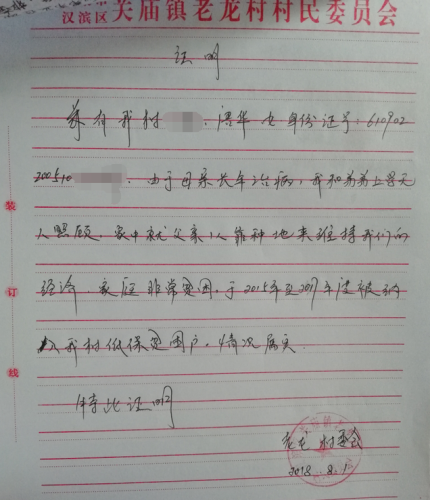 汉滨区关庙镇老龙村村民委员会
证明
兹有我村 女 身份证号:610902
200510 由于母亲长年治病,我和弟弟上学无
人照顾,家中就父亲1人靠种地来维持我们的
经济,家庭非常贫困,于2015年至2017年度被纳
入我村低保贫困户,情况属实.
特此证明
老龙村委会
2018.8.1
装
订
线